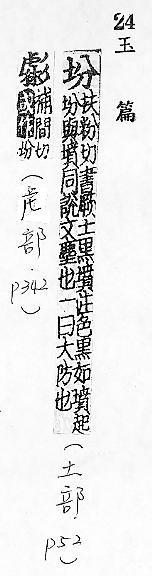 24
玉篇
坋
扶粉切書厥土黑墳注色黑如墳起
坋與墳同説文塵也一曰大防也
(土部.p52)
補間切
(虎部.p342)